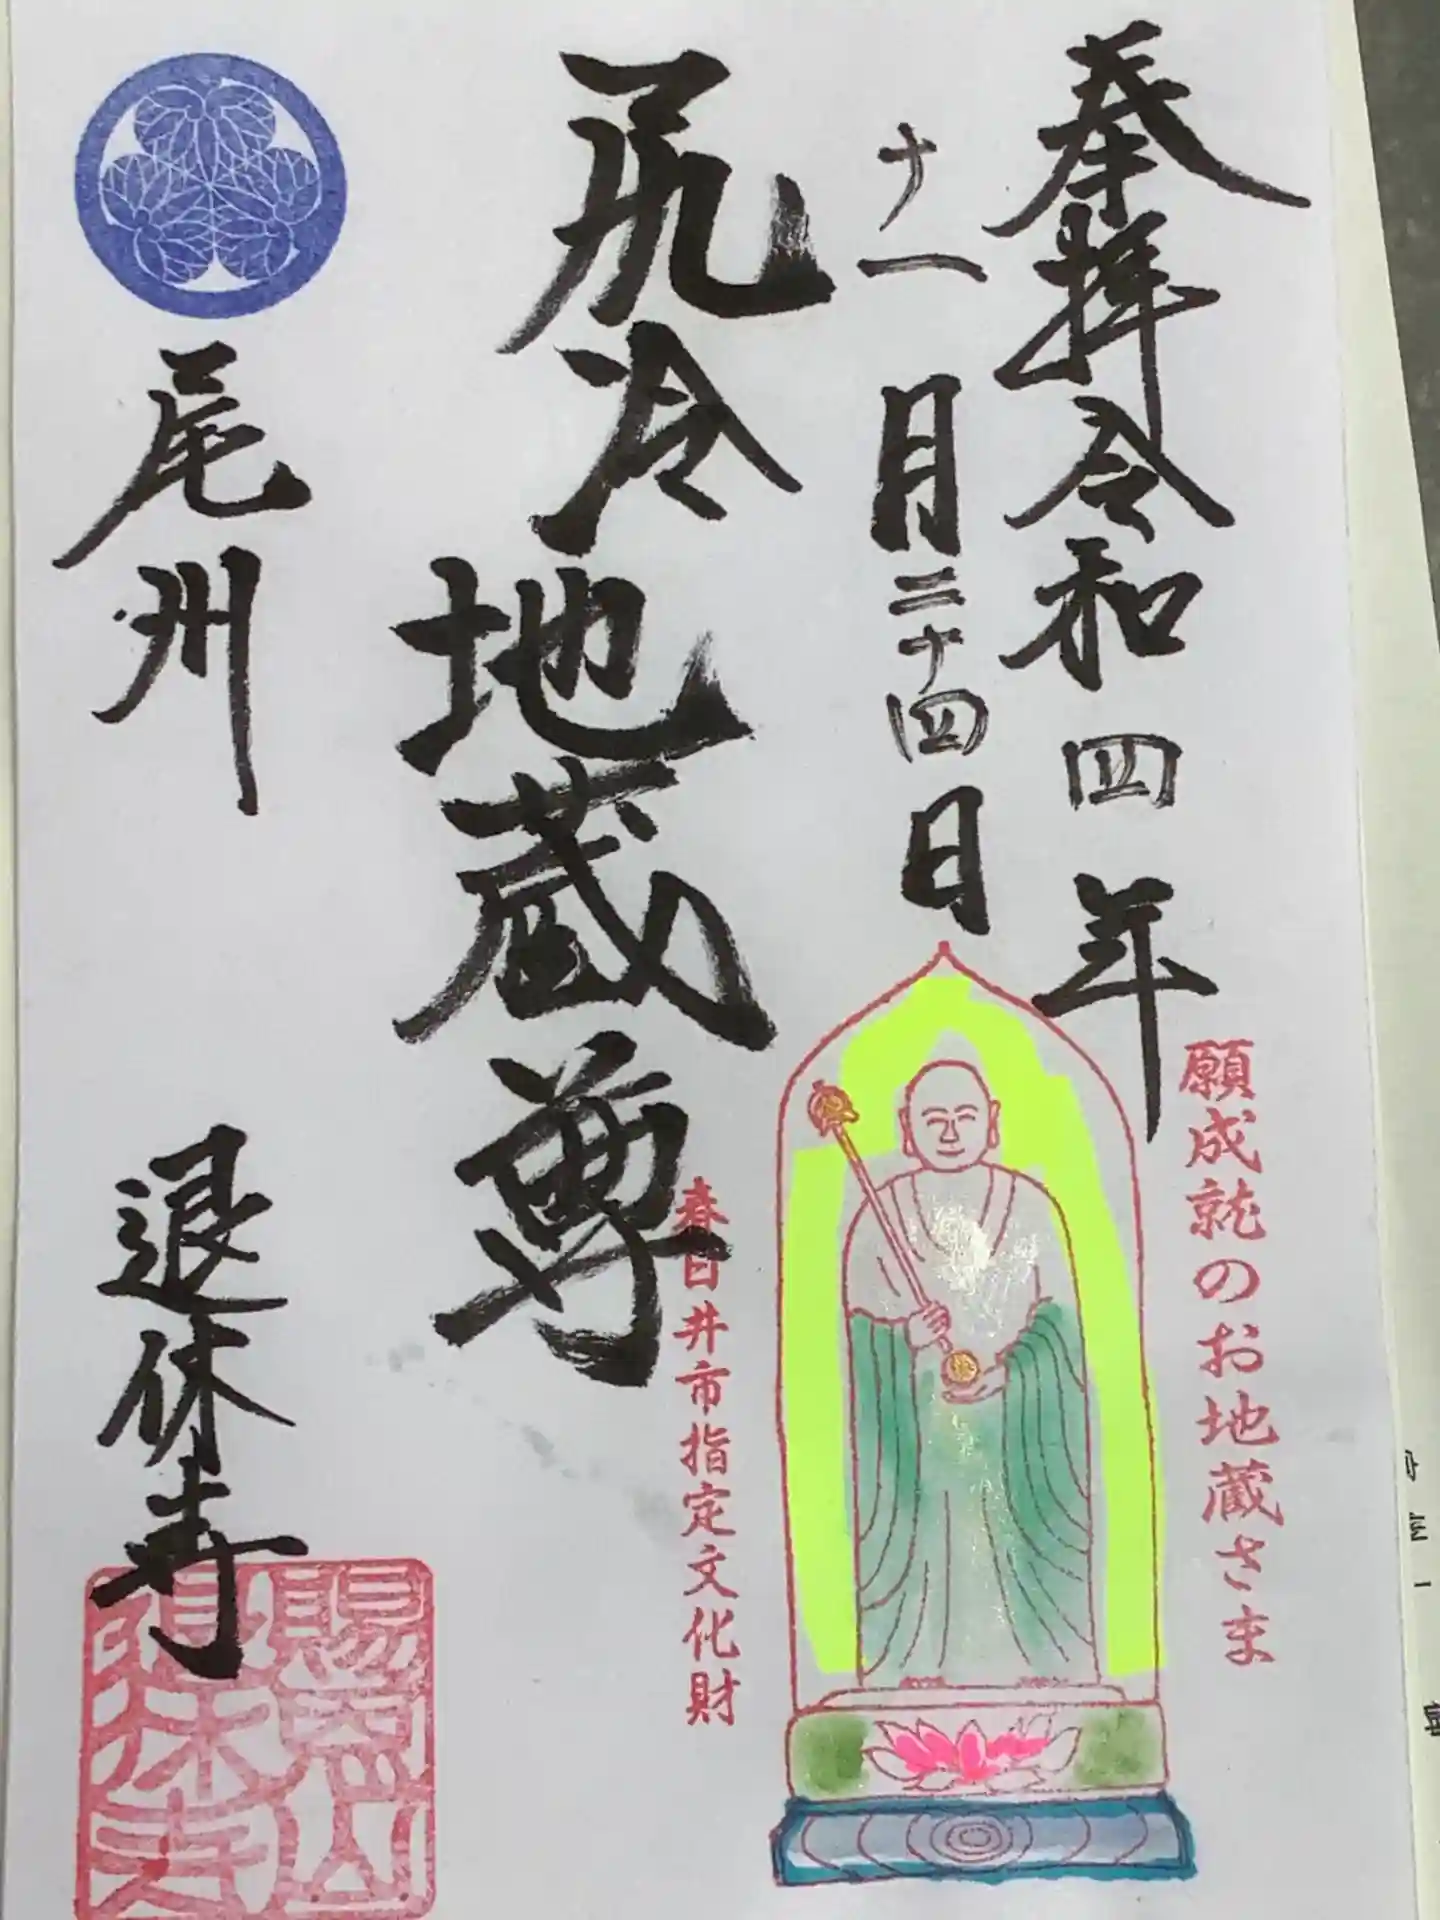 奉拝 令和四年
十一月二十四日
願成就のお地蔵さま
尻冷地蔵尊
春日井市指定文化財
尾州 退休寺
賜恩山
退休寺